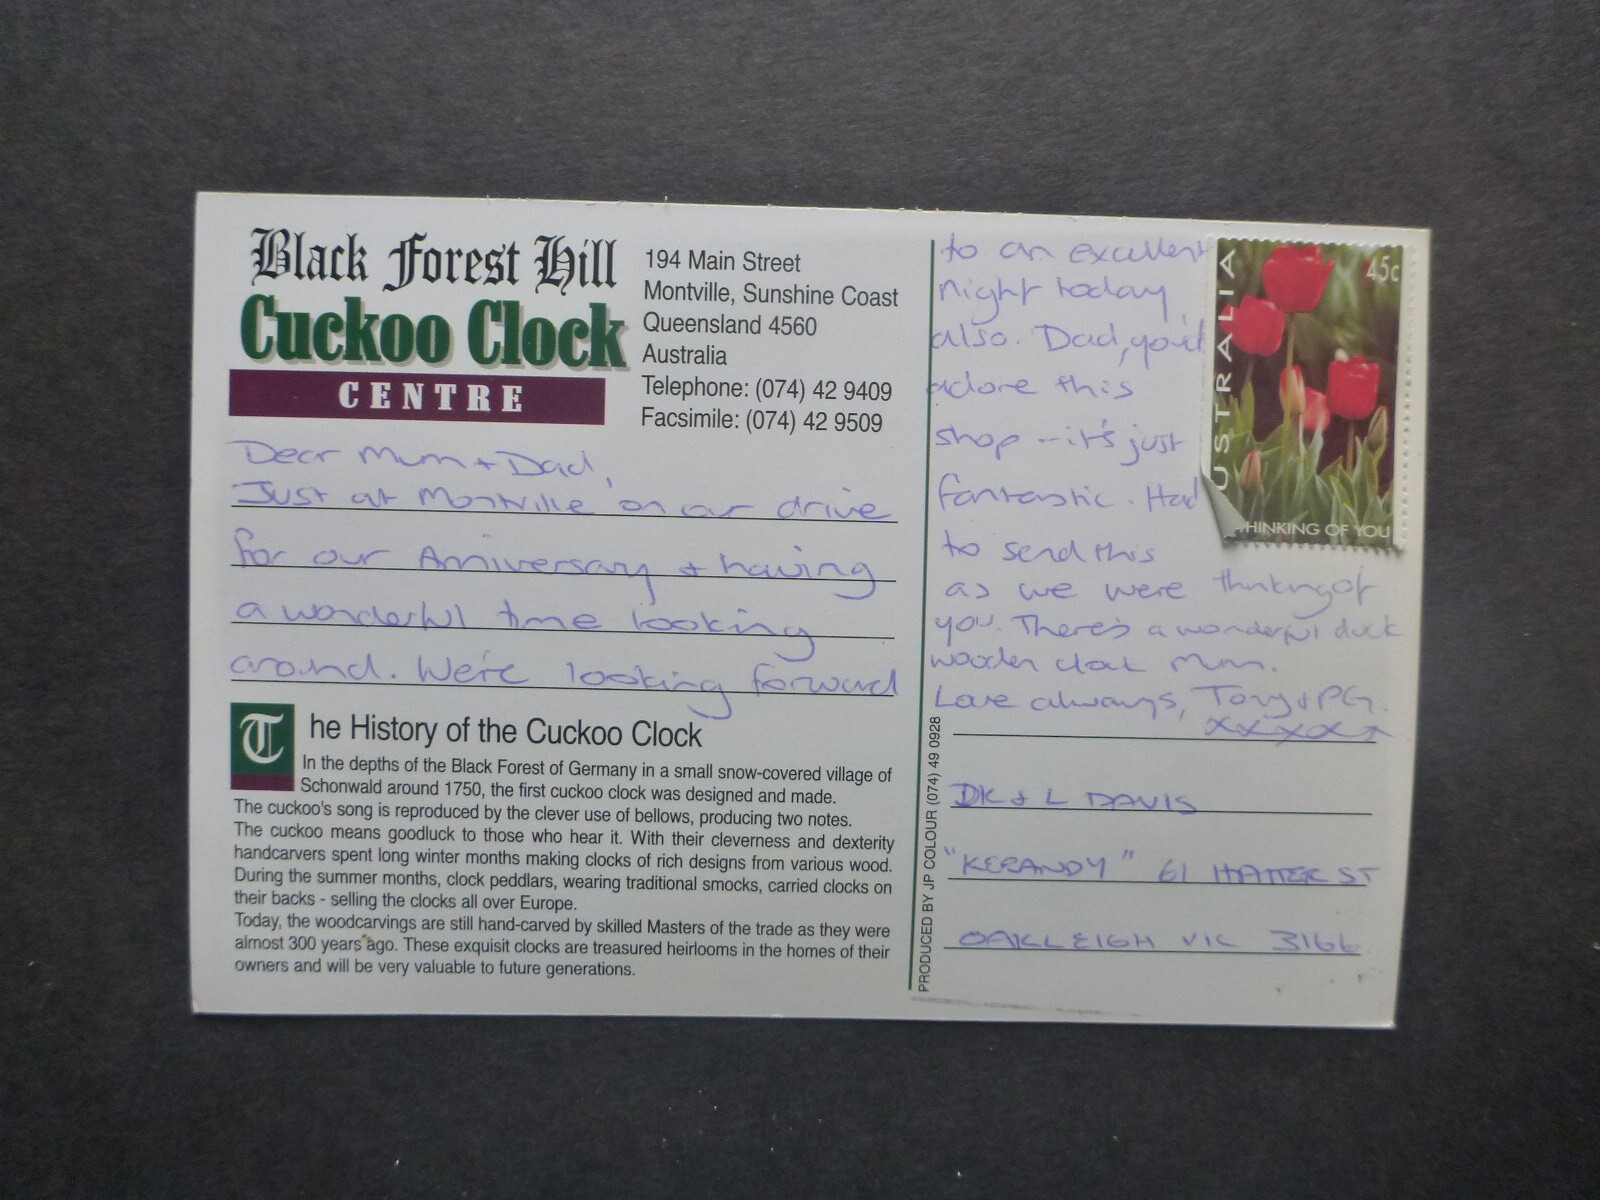 Black Forest Hill
Cuckoo Clock
CENTRE
194 Main Street
Montville, Sunshine Coast
Queensland 4560
Australia
Telephone: (074) 42 9409
Facsimile: (074) 42 9509
Dear Mum + Dad,
Just at Montville on our drive
for our Anniversary + having
a wonderful time looking
around. We're looking forward
The History of the Cuckoo Clock
In the depths of the Black Forest of Germany in a small snow-covered village of
Schonwald around 1750, the first cuckoo clock was designed and made.
The cuckoo's song is reproduced by the clever use of bellows, producing two notes.
The cuckoo means goodluck to those who hear it. With their cleverness and dexterity
handcarvers spent long winter months making clocks of rich designs from various wood.
During the summer months, clock peddlars, wearing traditional smocks, carried clocks on
their backs - selling the clocks all over Europe.
Today, the woodcarvings are still hand-carved by skilled Masters of the trade as they were
almost 300 years ago. These exquisit clocks are treasured heirlooms in the homes of their
owners and will be very valuable to future generations.
PRODUCED BY JP COLOUR (074) 49 0928
to an excellent
night today
also. Dad, you'd
adore this
shop - it's just
fantastic. Had
to send this
as we were thinking of
you. There's a wonderful duck
wooden clock Mum.
Love always, Tony + PG.
xxxxxx
DK + L DAVIS
"KERANDY" 61 HATTER ST
OAKLEIGH VIC 3166
45c
AUSTRALIA
THINKING OF YOU